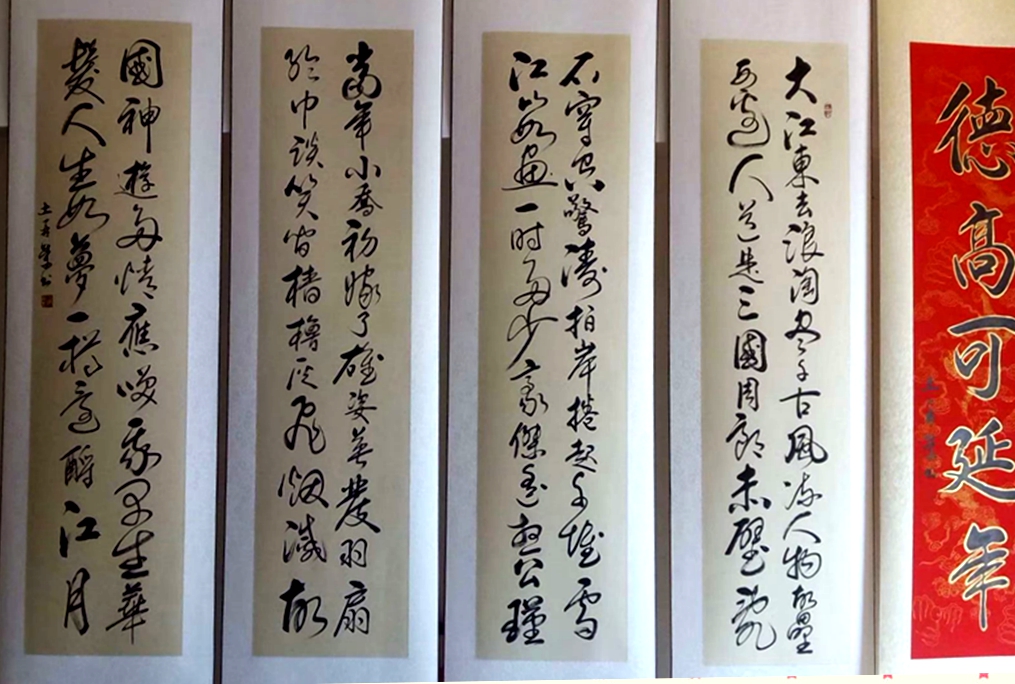 德高可延年
大江東去浪淘尽千古風流人物故壘
西邊人道是三國周郎赤壁亂
石穿空驚濤拍岸捲起千堆雪
江如畫一时多少豪傑遥想公瑾
當年小喬初嫁了雄姿英發羽扇
綸巾談笑间檣櫓灰飛烟滅故
國神遊多情應笑我早生華
髮人生如夢一樽還酹江月